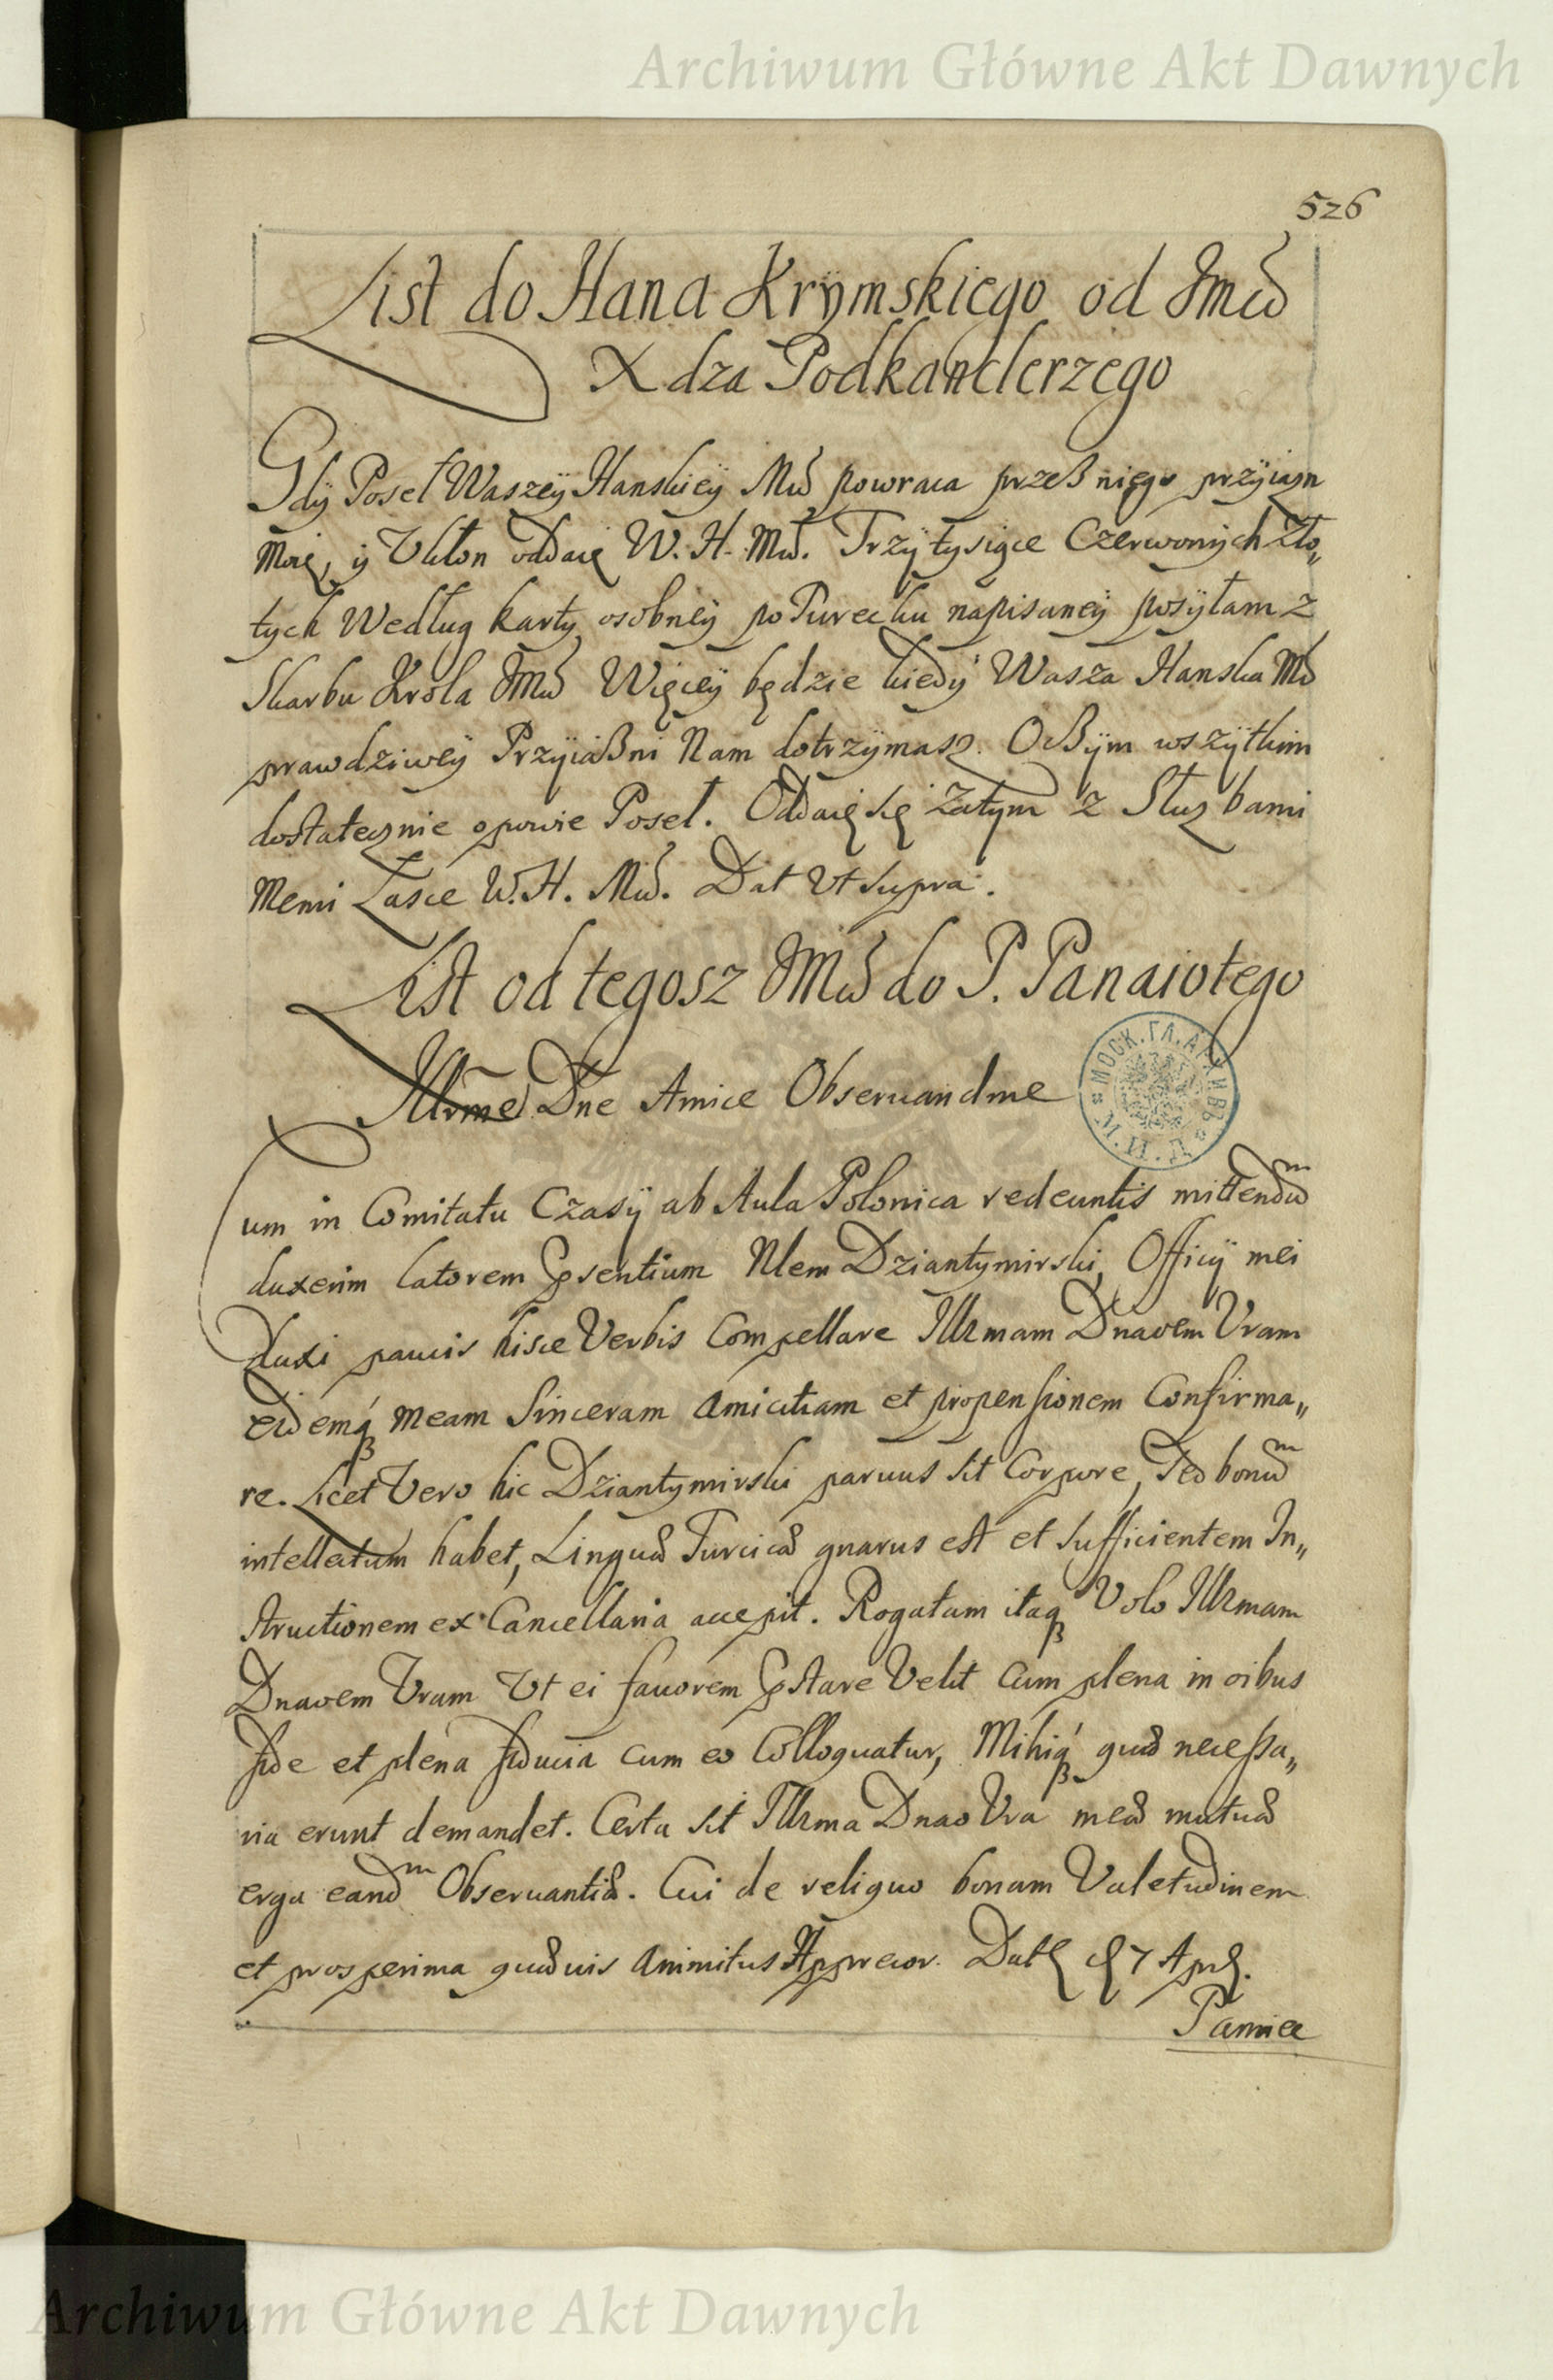 Archiwum Główne Akt Dawnych
526
List do Hana Krÿmskiego od JMći
Xdza Podkanclerzego
Gdÿ Poseł Waszeÿ Hanskieÿ Mći powraca przeß niego przÿiazn
Moię, ÿ Ukłon oddaię W. H. Mći. Trzÿ tysiące Czerwonÿch Zło„
tych Według karty osobneÿ po Turecku napisaneÿ posÿłam z
Skarbu Krola JMći Więceÿ będzie kiedÿ Wasza Hanska Mć
prawdziweÿ Przÿiaßni Nam dotrzÿmasz. O ßÿm wszÿtkim
dostatecznie opowie Poseł. Oddaię się Zatÿm z Służbami
Memi Łasce W. H. Mći. Dat Ut supra.
List od tegosz JMći do P. Panaiotego
Illrme Dne Amice Obseruandme
Cum in Comitatu Czasÿ ab Aula Polonica redeuntis mittendum
duxerim latorem pñsentium Nlem Dziantymirski, Officÿ mei
duxi paucis hisce Verbis Compellare Illrmam Dnaoem Vram
eidemq meam Sinceram Amicitiam et propensionem Confirma„
re. Licet Vero hic Dziantymirski paruus sit Corpore, Sed bonum
intellectum habet, Linguæ Turcicæ gnarus est et sufficientem In„
structionem ex Cancellaria accepit. Rogatam itaq Volo Illrmam
Dnaoem Vram Ut ei fauorem pstare Velit Cum plena in oibus
fide et plena fiducia cum eo Colloquatur, Mihiq quæ necessa„
ria erunt demandet. Certa sit Illrma Dnao Vra meæ mutuæ
erga eandem Obseruantiæ. Cui de reliquo bonam Valetudinem
et prosperima quæuis Animitus Apprecor. Datt d 7 Apr.
Pamiec
МОСК. ГЛ. АРХИВЪ
Archiwum Główne Akt Dawnych